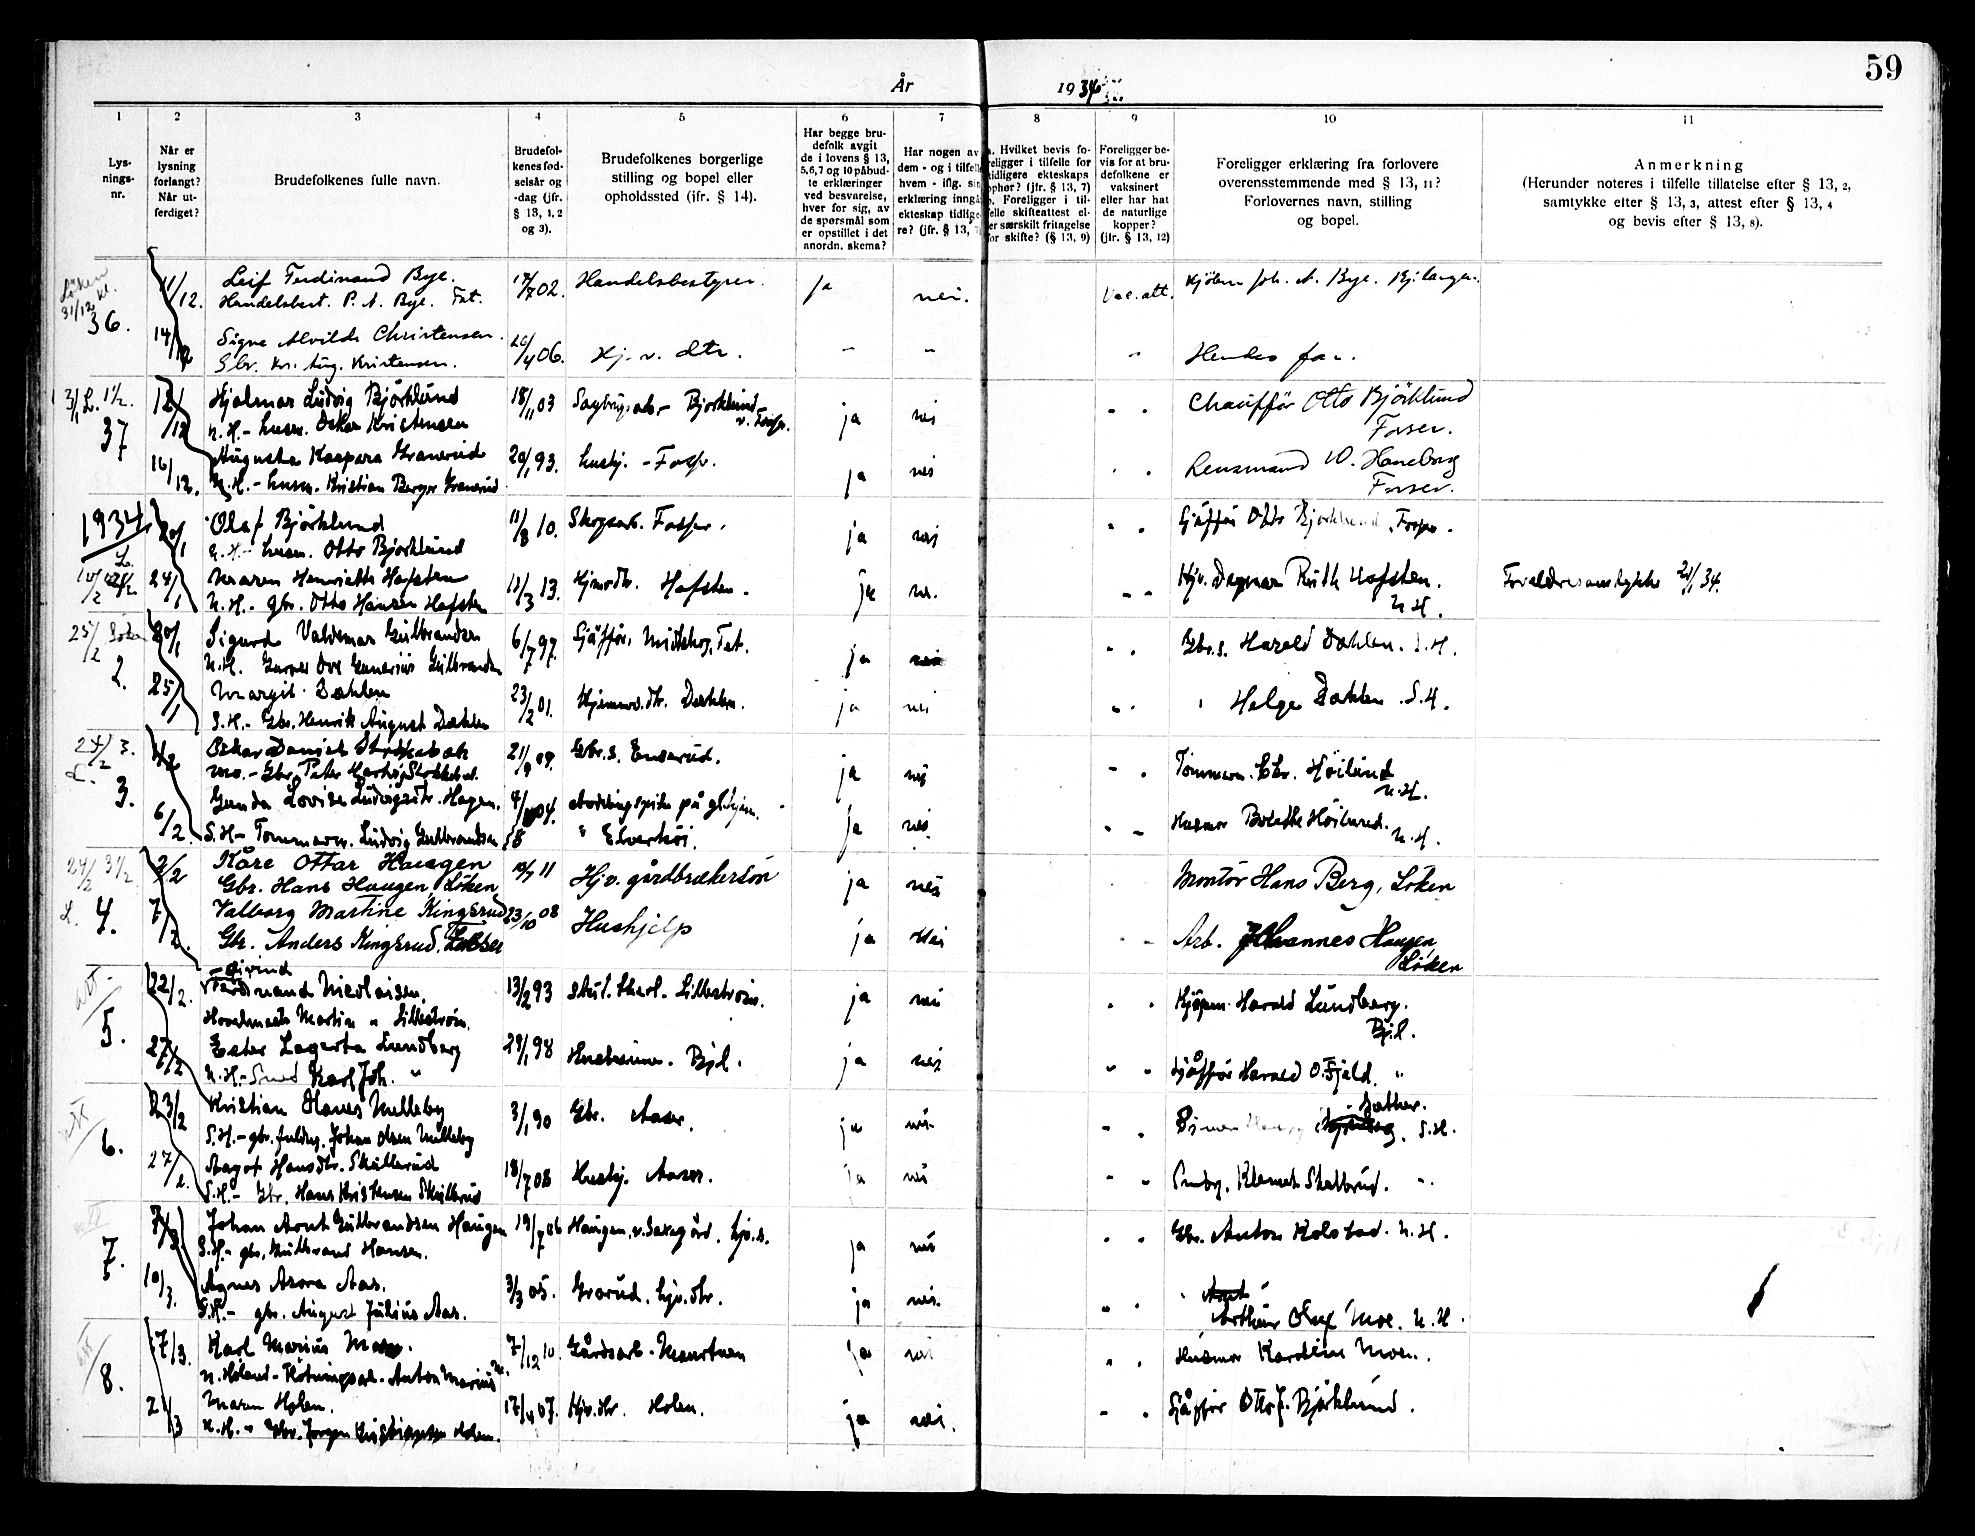 59
År 1934
1 2 3 4 5 6 7 8 9 10 11
Lys-
nings-
nr.
Når er
lysning
forlangt?
Når ut-
ferdiget?
Brudefolkenes fulle navn.
Brudefol-
kenes fød-
selsår og
-dag (jfr.
§ 13, 1, 2
og 3).
Brudefolkenes borgerlige
stilling og bopel eller
opholdssted (ifr. § 14).
Har begge bru-
defolk avgit
de i lovens § 13,
5,6,7 og 10 påbud-
te erklæringer
ved besvarelse,
hver for sig, av
de spørsmål som
er opstillet i det
anordn. skema?
Har nogen av
dem - og i tilfelle
hvem - iflg. sin
erklæring inngå
ekteskap tidlige-
re? (jfr. § 13,
a. Hvilket bevis fo-
religger i tilfelle for
tidligere ekteskaps
ophør? (jfr. § 13, 7)
b. Foreligger i til-
felle skifteattest el-
er særskilt fritagelse
for skifte? (§ 13, 9)
Foreligger be-
vis for at bru-
defolkene er
vaksinert
eller har hat
de naturlige
kopper?
(jfr. § 13, 12)
Foreligger erklæring fra forlovere
overensstemmende med § 13, 11?
Forlovernes navn, stilling
og bopel.
Anmerkning
(Herunder noteres i tilfelle tillatelse efter § 13, 2,
samtykke efter § 13, 3, attest efter § 13, 4
og bevis efter § 13, 8).
Løken
31/12 kl.
36.
11/12. Leif Ferdinand Bye. 17/7 02. Handelsbestyrer. ja nei. Vac.att. Kjøbm. Joh. A. Bye. Bj.langen.
Handelsbest. P. A. Bye. Fet.
14/12 Signe Alvilde Christensen. /4 06. Hj. v. dtr. - - " Hendes far.
Gbr. Kr. Aug. Kristensen.
37
12/12 Hjalmar Ludvig Björklund 18/11 03 Sagbrugsarb. - Bjorklund ja nei " " Chaufför Otto Björklund
N.H. - husm. Oskar Kristensen Fosser.
16/12. Augusta Kaspara Granerud 20/1 93. hushj. - Foss. ja nei " " Lensmand O. Haneborg
N.H. - husm. Kristian Berger Granerud Fosser.
1934
20/1 Olaf Björklund 11/8 10. Skogsarb. Fosser. ja nei " " Sjåffør Otto Bjorklund, Fosser.
N.H. - husm. Otto Bjorklund
24/1 Maren Henriette Hofsten 11/3 13. Hjmvdtr. Hofsten. ja nei. " " Hjv. Dagmar Ruth Hofsten. Forældresamtykke 20/1 34.
N.H. - gbr. Otto Hansen Hofsten N.H.
25/2 Løken
2.
20/1 Sigurd Valdemar Gulbrandsen 6/7 97. Sjåffør, Midtskog, Fet. ja nei " " Gbr.s. Harald Dahlen. S.H.
N.H. Ove Gunerius Gulbrandsen
25/1 Margit Dahlen 23/2 01. Hjemmev.dtr. Dahlen. ja nei " " " Helge Dahlen. S.H.
S.H. - Gbr. Henrik August Dahlen
24/2 3.
L. 3.
4/2 Oskar Daniel Strekabek 21/9 09. Gbr.s. Enserud. ja nei " " Tømmerm. Chr. Höilund
Gbr. Peter N.H.
6/2 Gunda Lovise Ludvigsdtr. Hagen. 04. Avdelingspike på gl.hjem. ja nei " " Husmor Bolette Höilund.
S.H - Tømmerm. Ludvig Gulbrandsen " Elverhöi. N.H.
24/2 3 1/2
L. 4.
2/2 Kåre Ottar Haugen 11 Hj.v. gårdbrukersön ja nei Montör Hans Berg, Löken
Gbr. Hans Haugen, Löken
7/2. Valborg Martine Kingsrud 23/10 08 Hushjelp ja Nei " " Arb. Johannes Haugen,
Gbr. Anders Kingsrud. Fosser Löken
att.
5.
22/2. Eivind
Ferdinand Nicolaisen. 13/2 93 Lillestrøm. ja nei " " Kjøpm. Harald Lundberg.
Martin " Lillestrøm. Bjl.
27/2 Ester Lagerta Lundberg 29/1 98 Husbestyr. Bjl. ja nei " " Sjåffør Harald O. Fjeld. "
N.H. - Smed Karl Joh. "
att
6.
23/2 Kristian Hans Melleby 3/1 90 Gbr. Aaser. ja nei. " " S.H.
S.H. - gbr. fuldm. Johan Olsen Melleby
27/2. Aagot Hansdtr. Skullerud 18/7 08 Hushj. Aaser. ja nei " " Klemet Skullrud. "
S.H. - Gbr. Hans Kristensen Skullrud
att
7.
7/3 Johan Arnt Gulbrandsen Haugen 19/7 06 Haugen, v. Saxegård. hjv.s. ja nei " " Gbr. Anton Kolstad. N.H.
S.H. - gbr. Gulbrand Hansen.
10/3. Agnes Asora Aas. 3/3 05. Grorud. hjv.dtr. ja nei. " " " Arnt
S.H. - gbr. August Julius Aas. Arthur Oluf Moe. N.H.
att
8.
17/3. Karl Marius Moen. 7/12 10. Gårdsarb. - Monstuen ja nei " " Husmor Karoline Moen.
N. Höland - Fløtningsarb. Anton Marius M.
21/3 Maren Holen. 17/4 07. Hjv.dtr. Holen. ja nei. " " Sjåffør Otto J. Björklund.
N.H. " Gbr. Jørgen Kristiansen Holen.